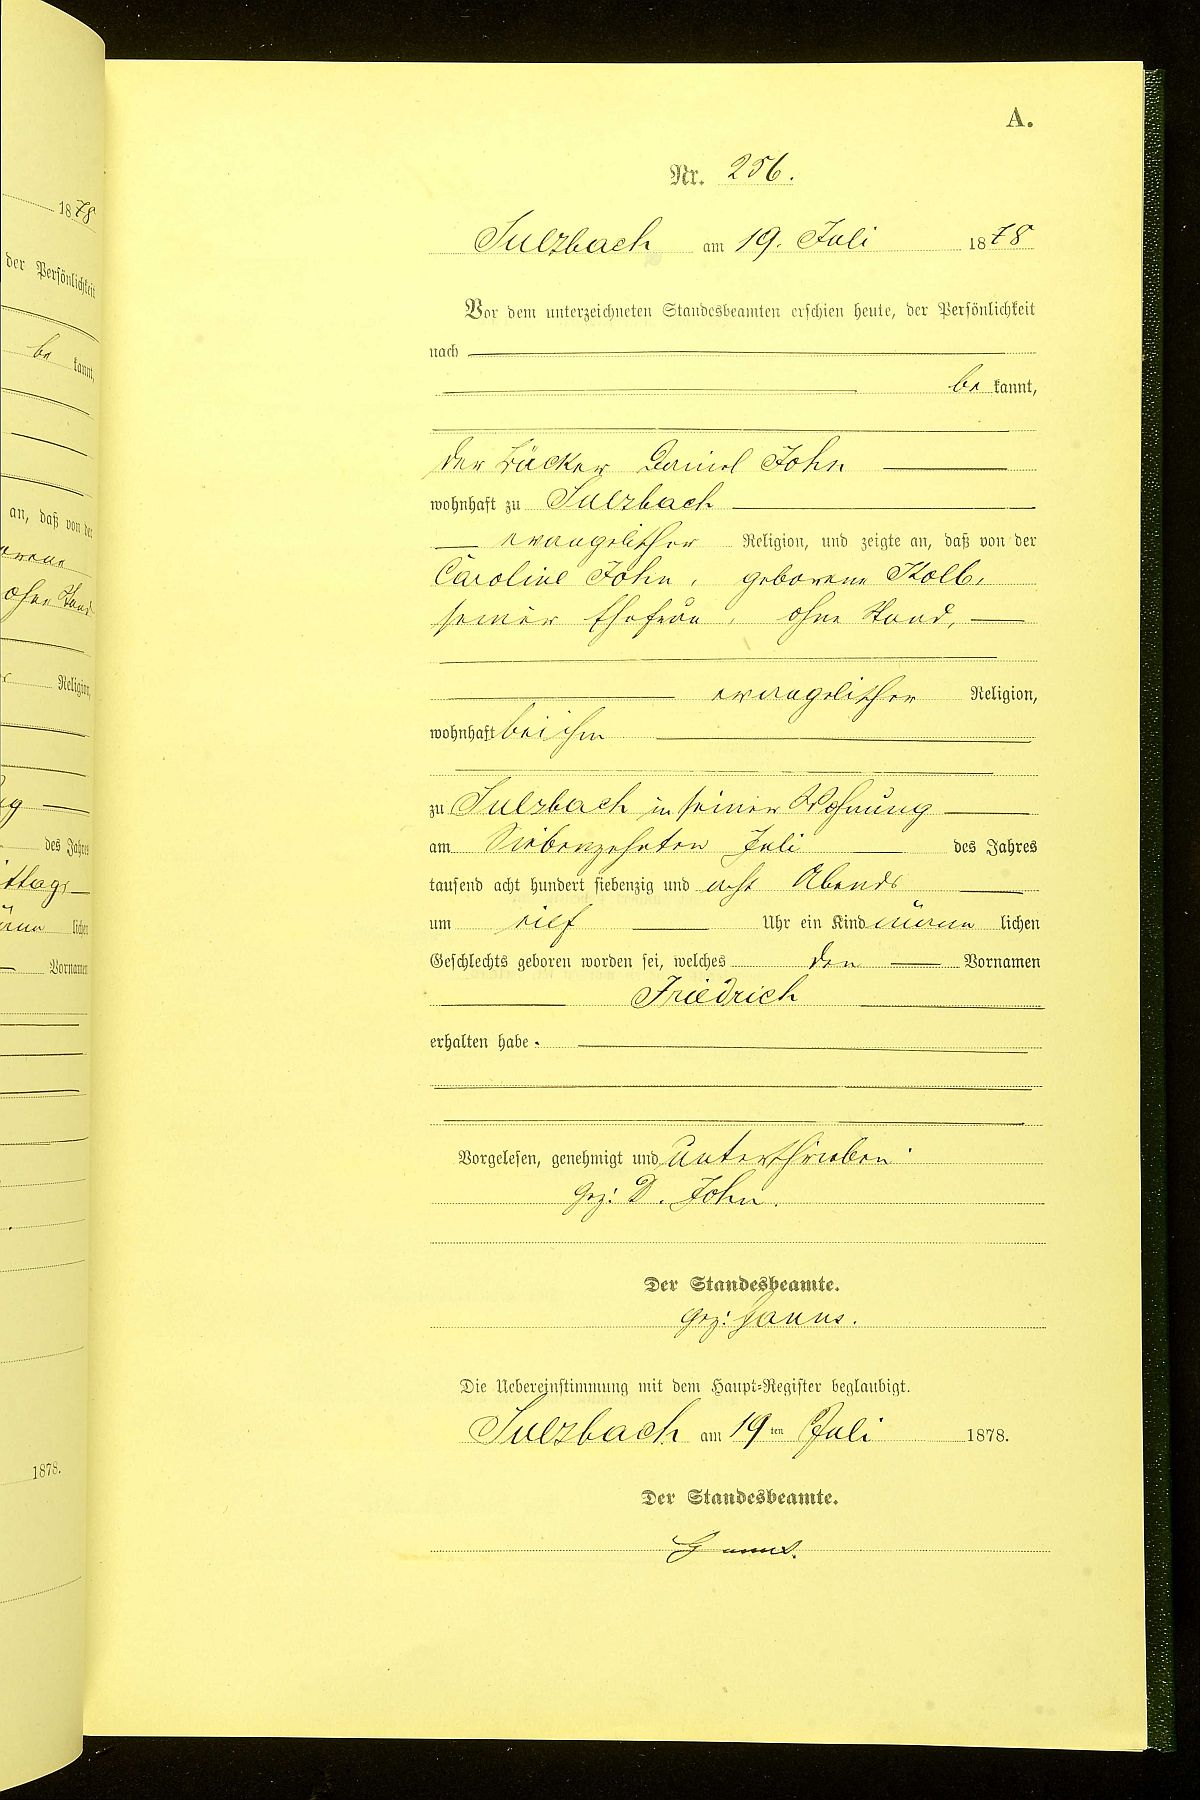 A.
Nr. 256.
Sulzbach am 19. Juli 1878
Vor dem unterzeichneten Standesbeamten erschien heute, der Persönlichkeit
nach
be kannt,
der Bäcker Daniel John
wohnhaft zu Sulzbach
evangelischer Religion, und zeigte an, daß von der
Caroline John, geborene Kolb,
seiner Ehefrau, ohne Stand,
evangelischer Religion,
wohnhaft bei ihm
zu Sulzbach in seiner Wohnung
am Siebenzehnten Juli des Jahres
tausend acht hundert siebenzig und acht Abends
um elf Uhr ein Kind männ lichen
Geschlechts geboren worden sei, welches den Vornamen
Friedrich
erhalten habe.
Vorgelesen, genehmigt und unterschrieben
gez: D. John.
Der Standesbeamte.
gez:
Die Uebereinstimmung mit dem Haupt-Register beglaubigt.
Sulzbach am 19ten Juli 1878.
Der Standesbeamte.
1878
der Persönlichkeit
be kannt,
an, daß von der
ohne Stand
Religion,
des Jahres
lichen
Vornamen
1878.